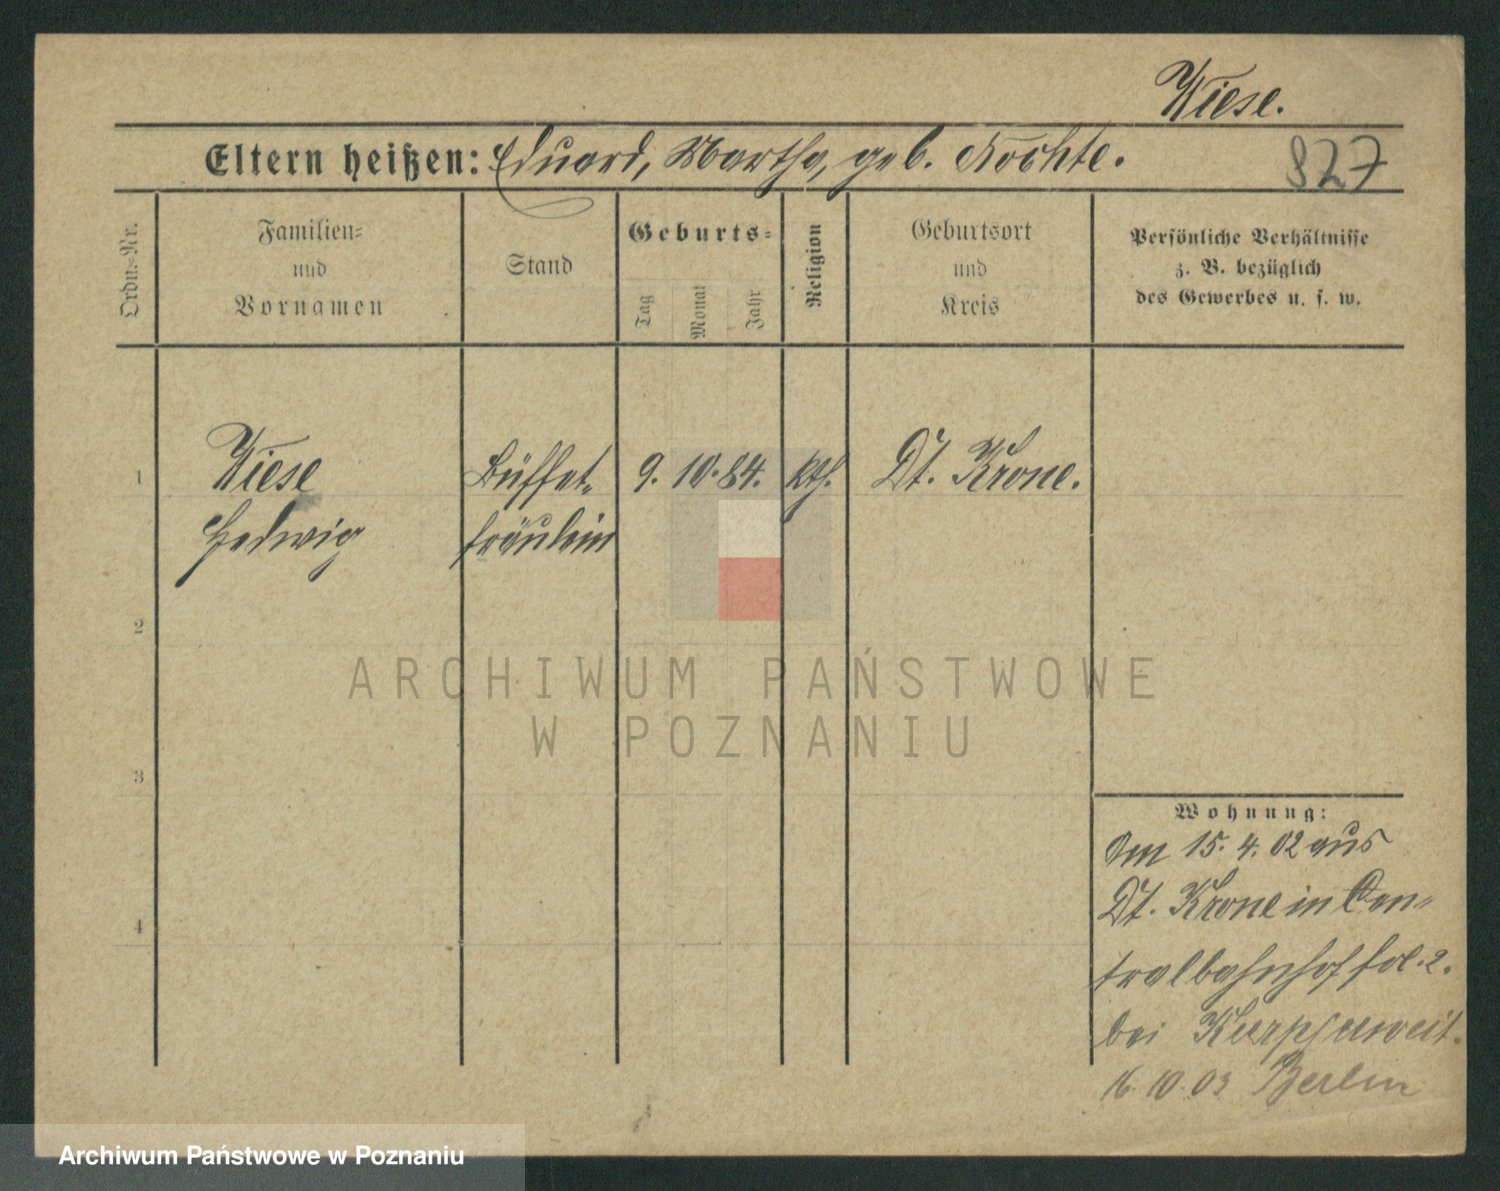 Wiese.
Eltern heißen: Eduard, Martha, geb. Kochte.
827
Ordn.-Nr.
Familien-
und
Vornamen
Stand
Geburts-
Tag
Monat
Jahr
Religion
Geburtsort
und
Kreis
Persönliche Verhältnisse
z. B. bezüglich
des Gewerbes u. s. w.
1
Wiese
Hedwig
Büffet-
fräulein
9. 10. 84.
kth.
Dt. Krone.
2
3
4
ARCHIWUM PAŃSTWOWE
W POZNANIU
Wohnung:
Am 15. 4. 02 aus
Dt. Krone in Cen-
tralbahnhof fol. 2.
bei
16. 10. 03 Berlin
Archiwum Państwowe w Poznaniu